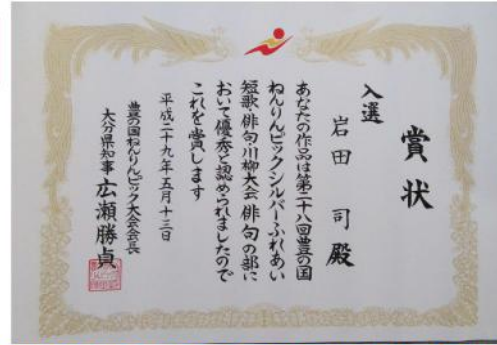 賞状
入選
岩田 司 殿
あなたの作品は第二十八回豊の国
ねんりんピックシルバーふれあい
短歌・俳句・川柳大会 俳句の部に
おいて優秀と認められましたので
これを賞します
平成二十九年五月十三日
豊の国ねんりんピック大会会長
大分県知事 広瀬勝貞